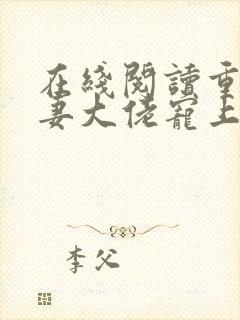 在綫閱讀重
妻大佬寵上
李父